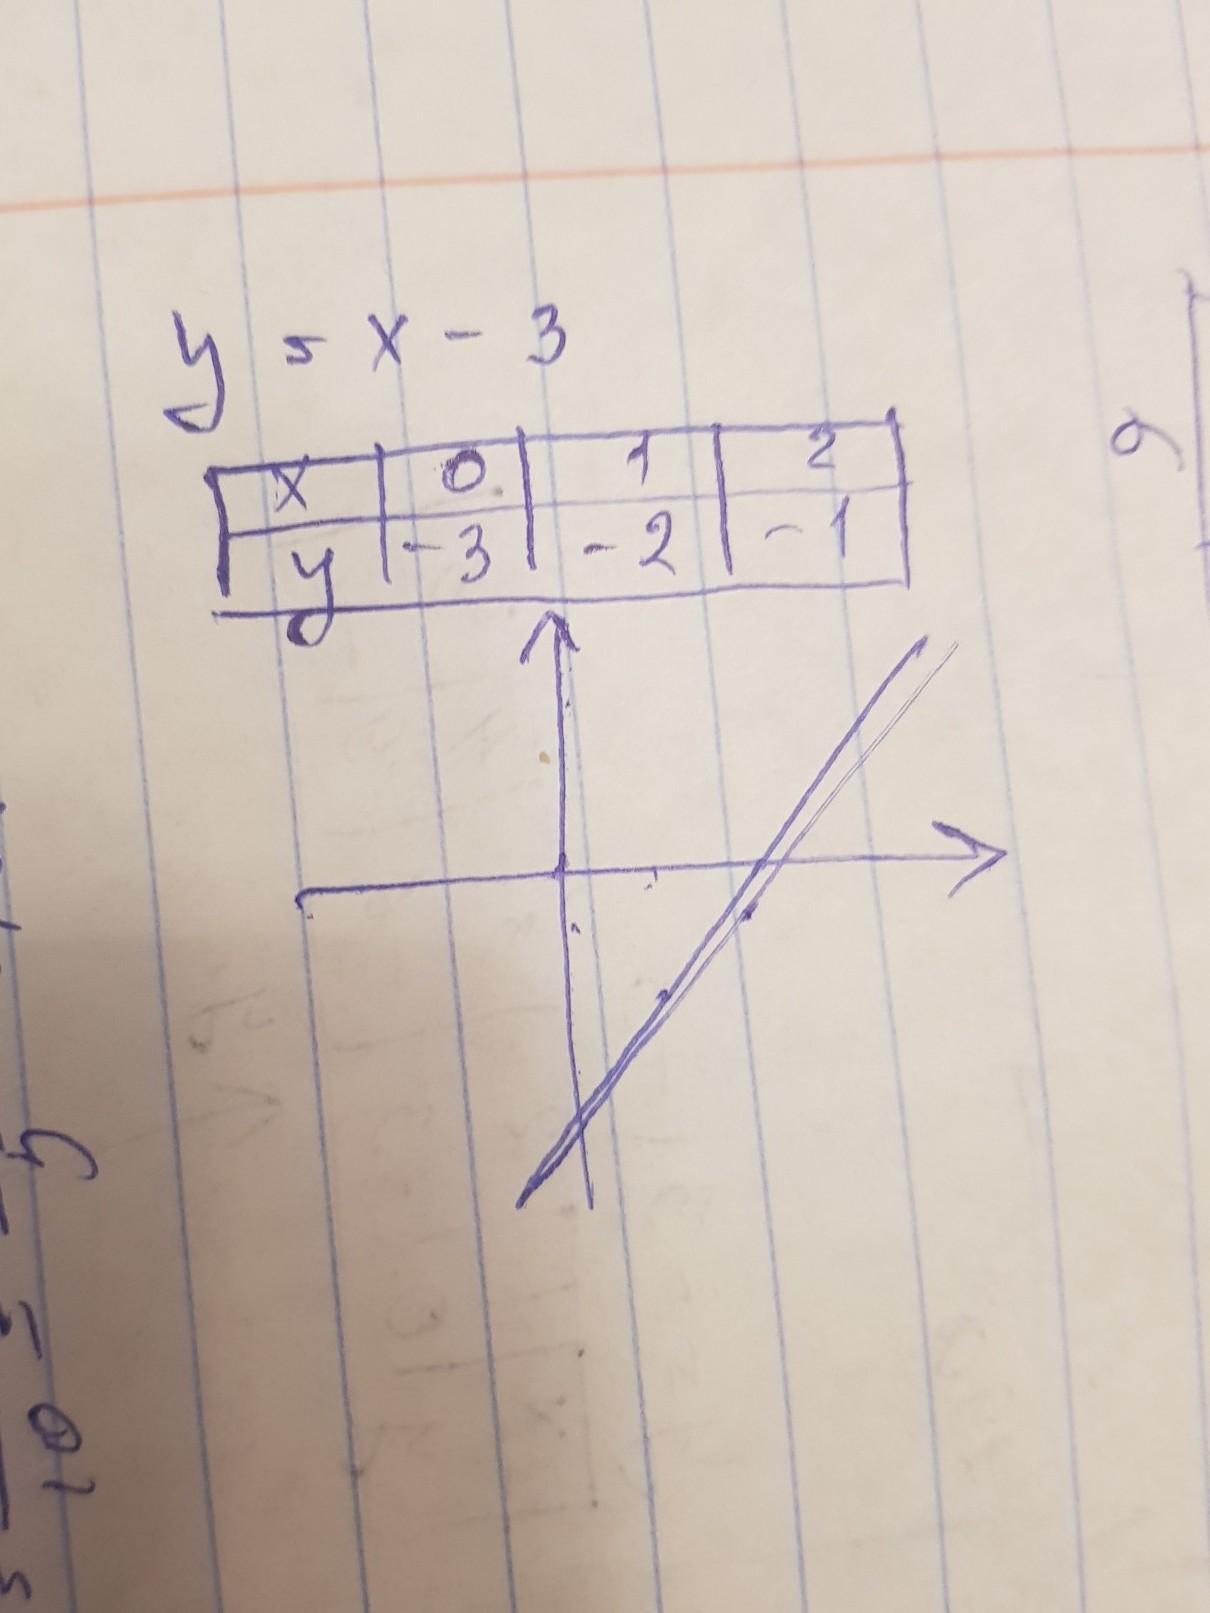 y = x - 3
x 0 1 2
y -3 -2 -1